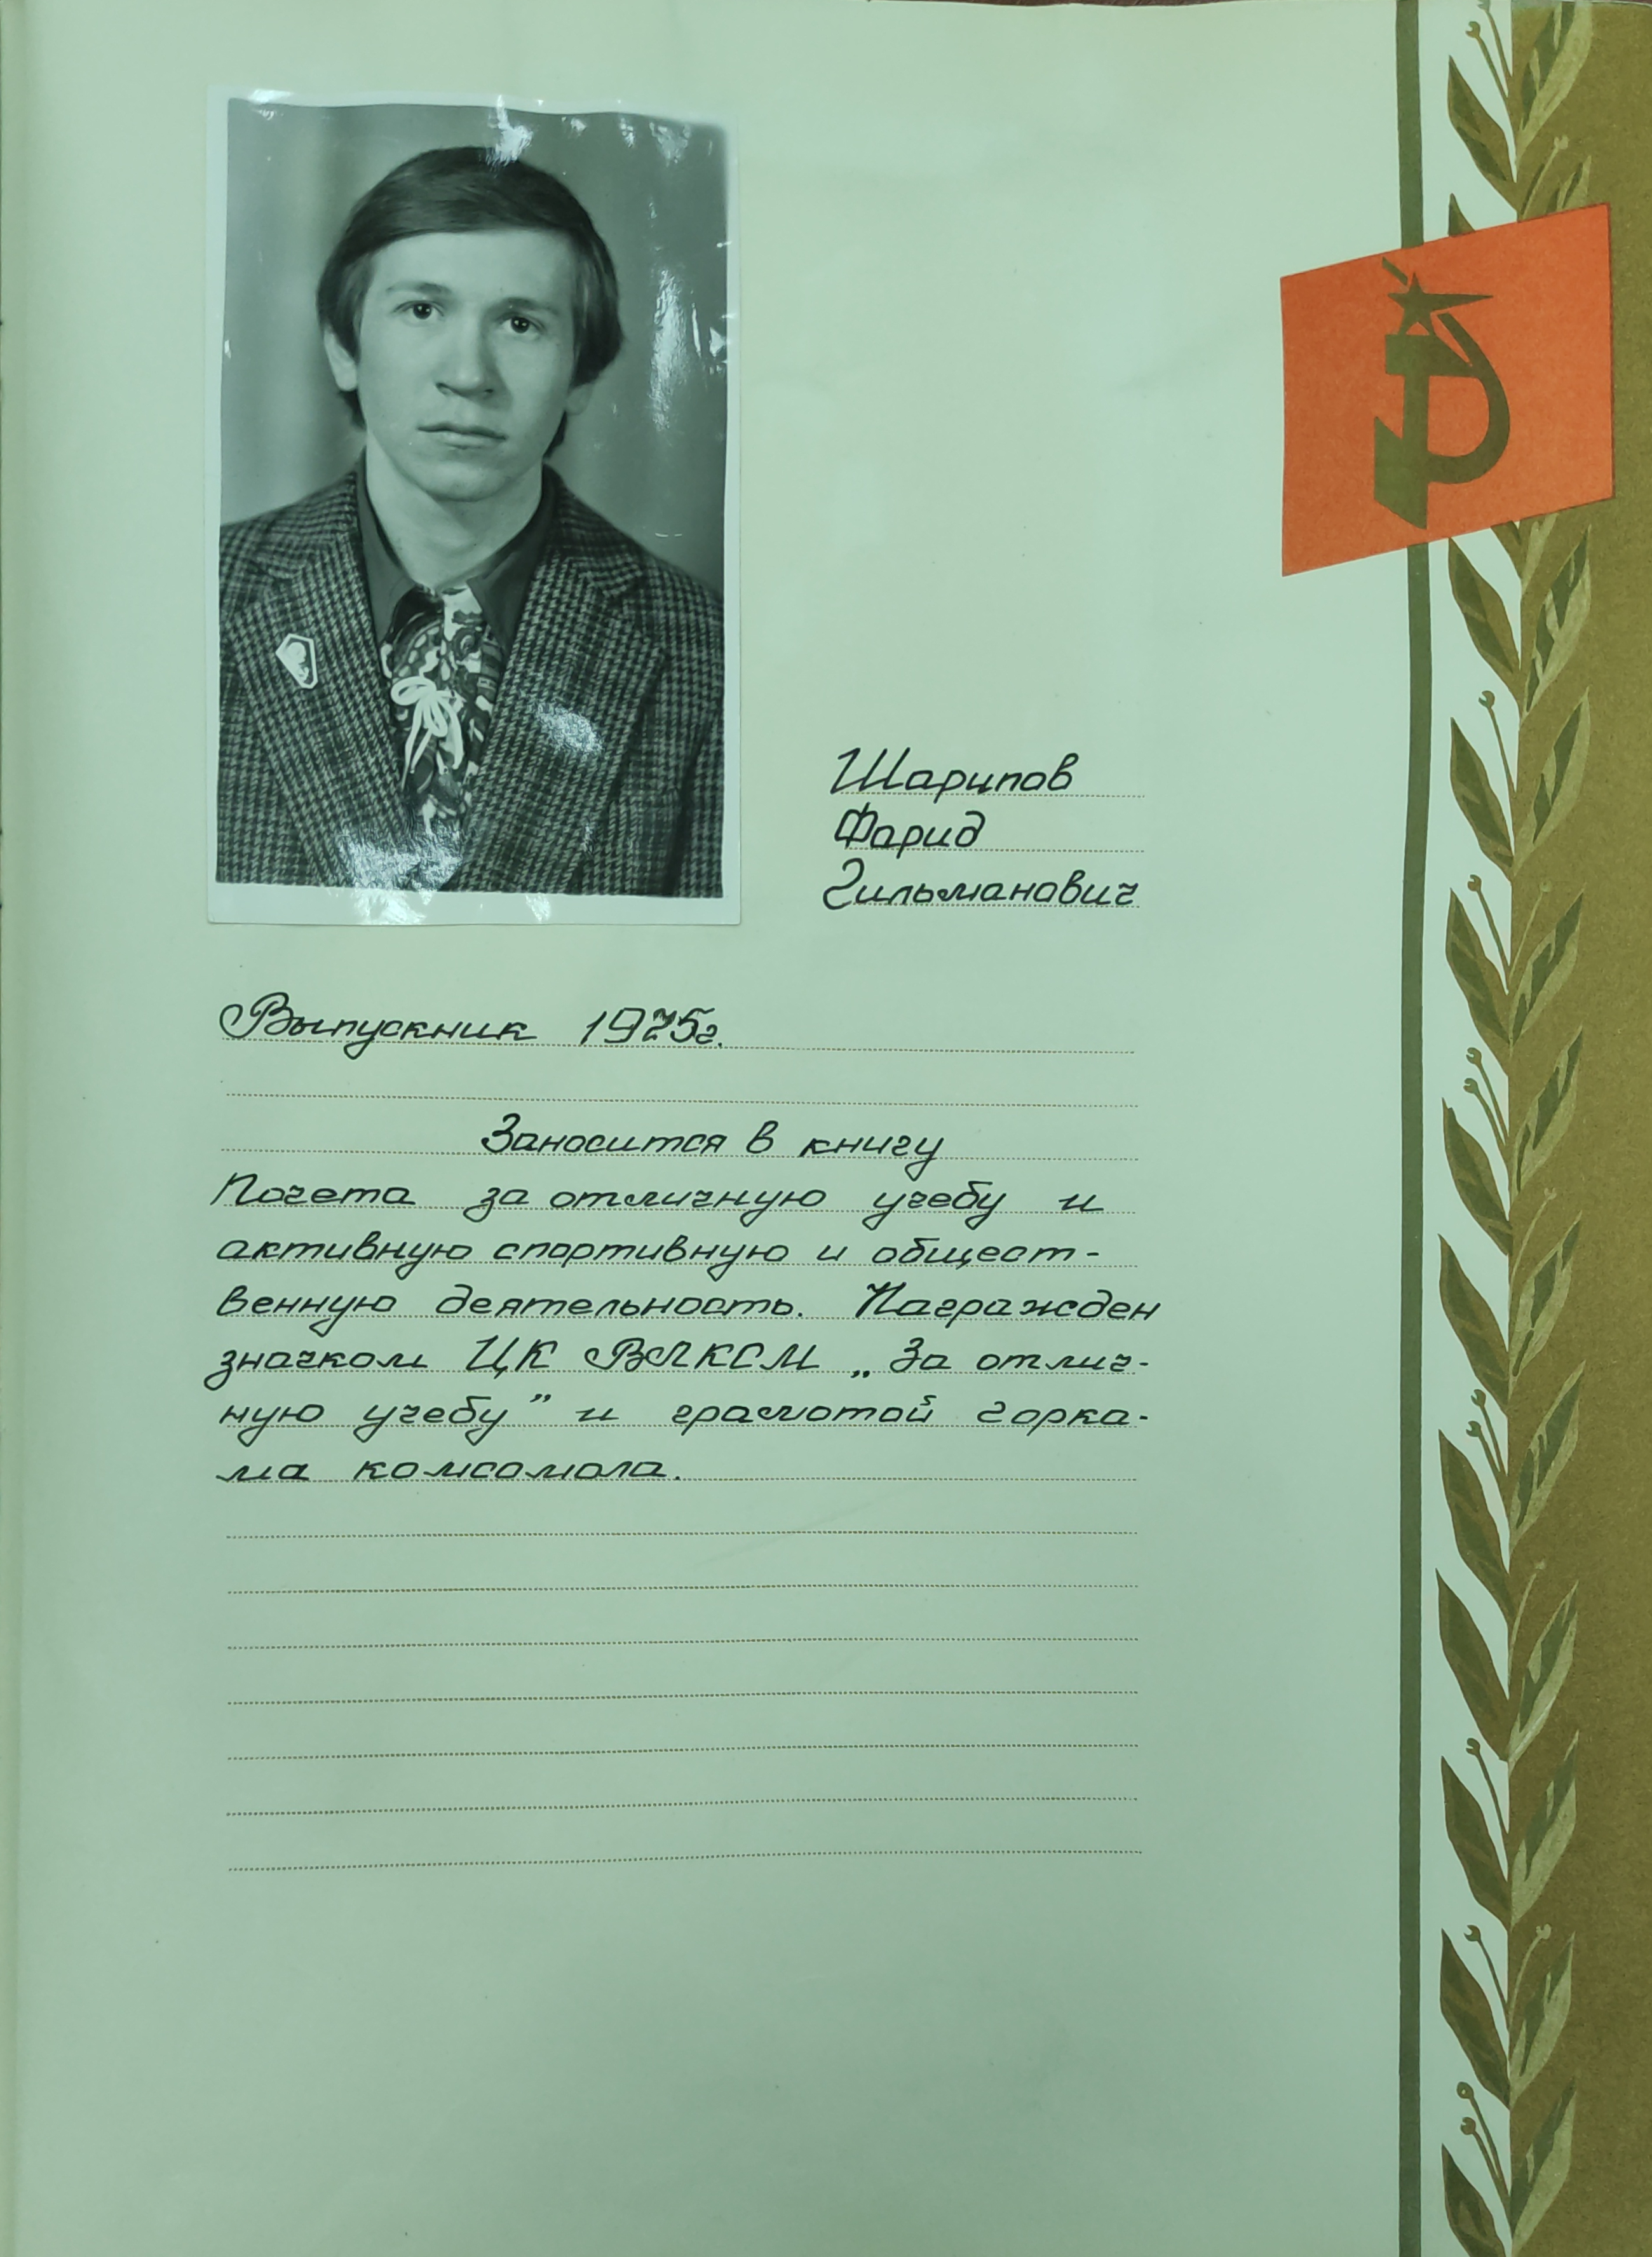 Шарипов
Фарид
Гильманович
Выпускник 1975г.
Заносится в книгу
Почета за отличную учебу и
активную спортивную и общест-
венную деятельность. Награжден
значком ЦК ВЛКСМ „За отлич-
ную учебу” и грамотой горка-
ма комсомола.